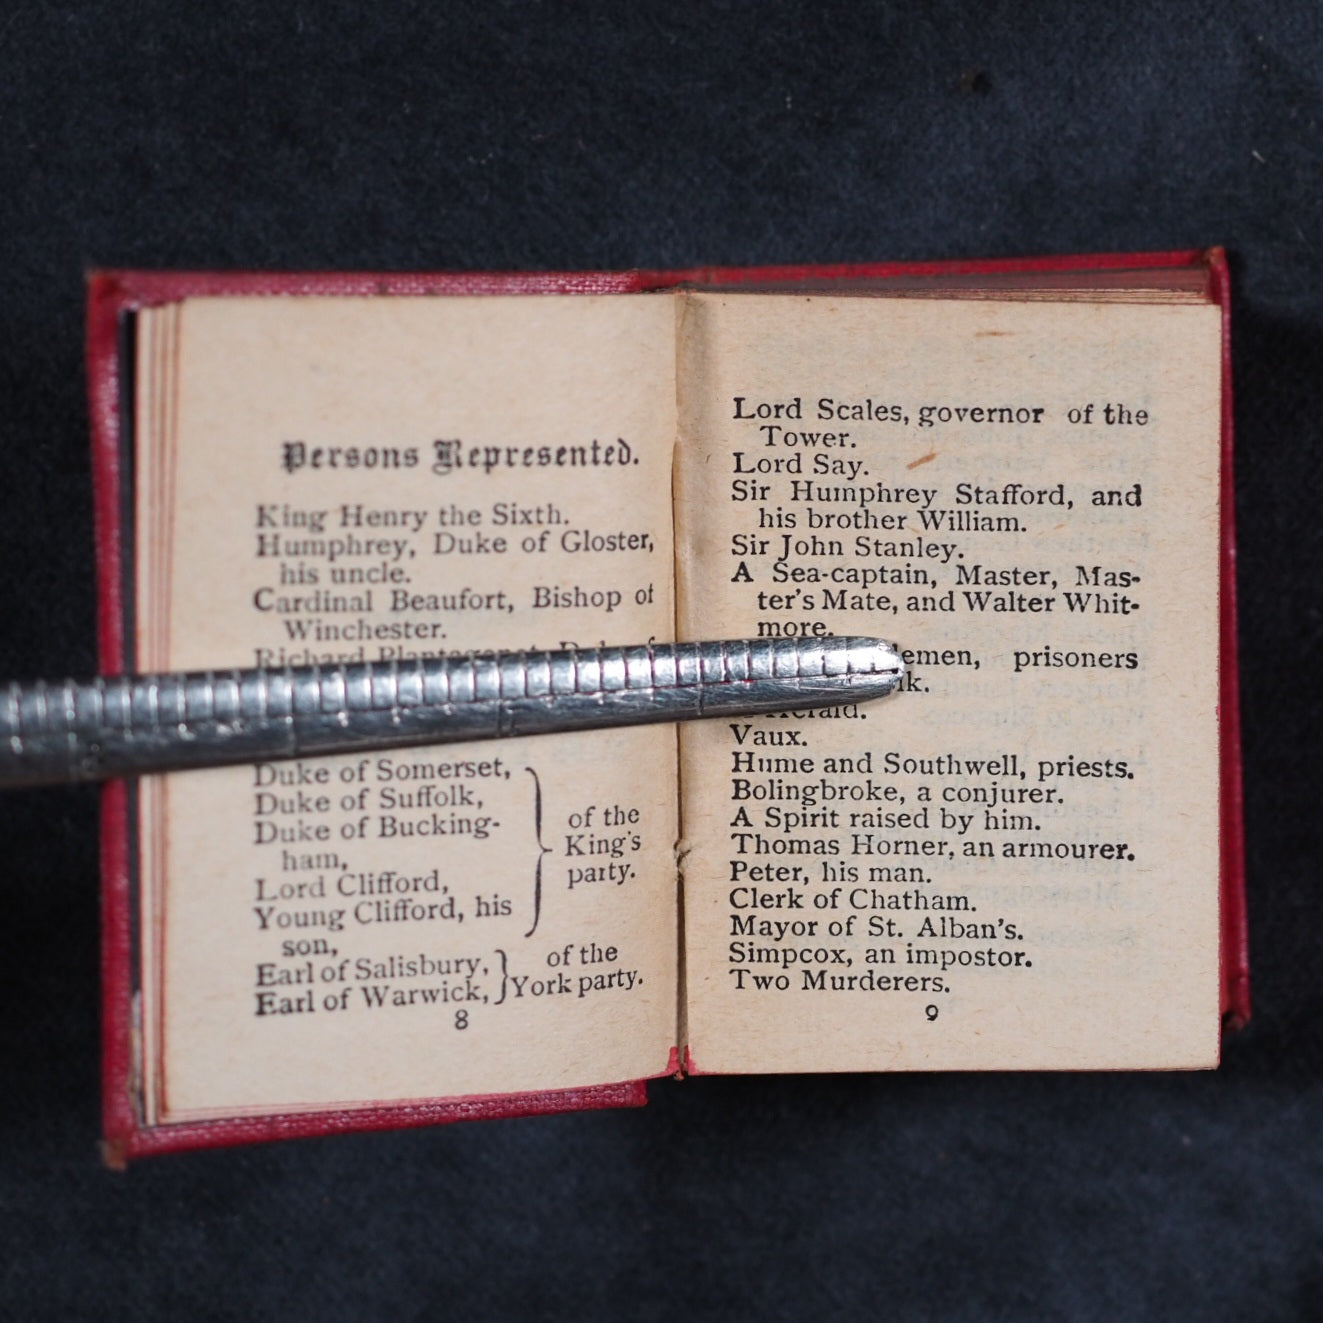 Persons Represented.
King Henry the Sixth.
Humphrey, Duke of Gloster,
his uncle.
Cardinal Beaufort, Bishop of
Winchester.
Richard Plantagenet, Duke of
Duke of Somerset,
Duke of Suffolk,
Duke of Bucking-
ham,
Lord Clifford,
Young Clifford, his
son,
of the
King's
party.
Earl of Salisbury,
Earl of Warwick,
of the
York party.
8
Lord Scales, governor of the
Tower.
Lord Say.
Sir Humphrey Stafford, and
his brother William.
Sir John Stanley.
A Sea-captain, Master, Mas-
ter's Mate, and Walter Whit-
more.
prisoners
Herald.
Vaux.
Hume and Southwell, priests.
Bolingbroke, a conjurer.
A Spirit raised by him.
Thomas Horner, an armourer.
Peter, his man.
Clerk of Chatham.
Mayor of St. Alban's.
Simpcox, an impostor.
Two Murderers.
9